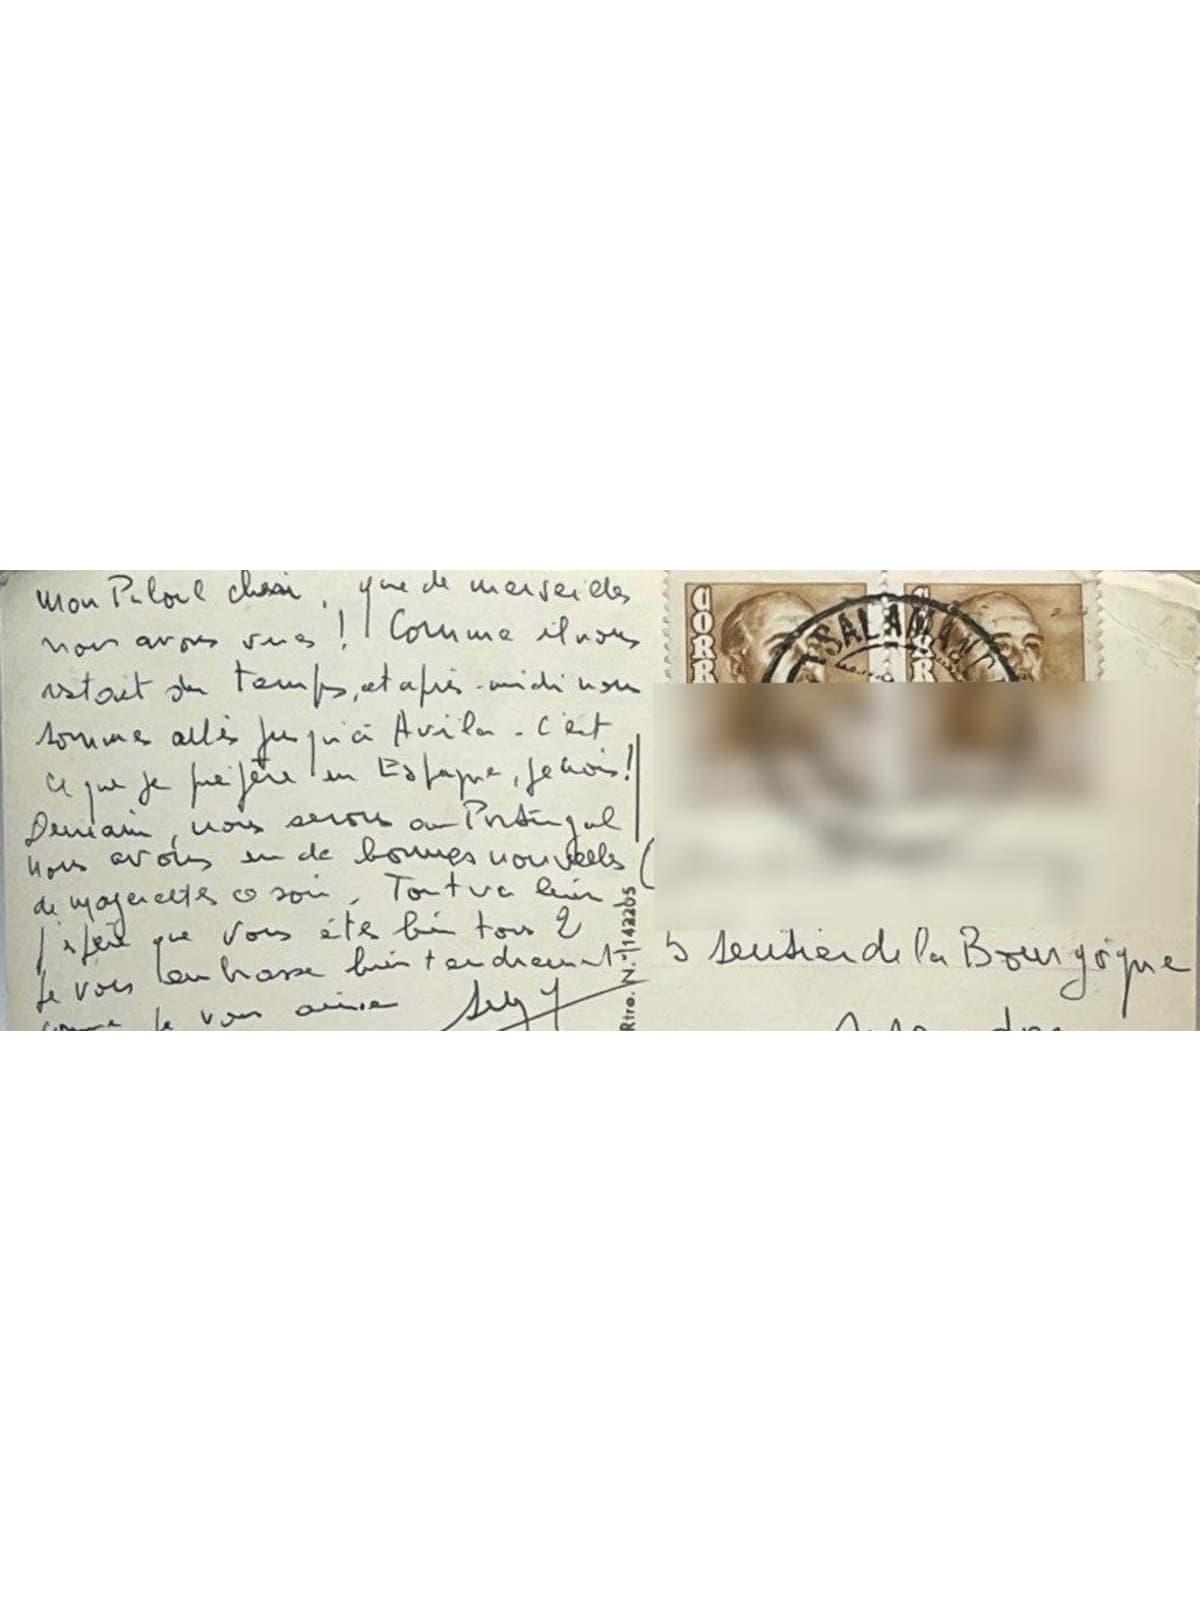 mon chéri, que de merveilles
nous avons vues ! Comme il nous
restait du temps, cet après-midi nous
sommes allés jusqu'à Avila - c'est
ce que je préfère en Espagne, je crois !
Demain, nous serons au Portugal
Nous avons eu de bonnes nouvelles
de ce soir, Tout va bien
J'espère que vous êtes bien tous 2
Je vous embrasse bien tendrement
comme je vous aime
Rtro. N.° 142205
CORR
CORR
SALAMANC
5 sentier de la Bourgogne